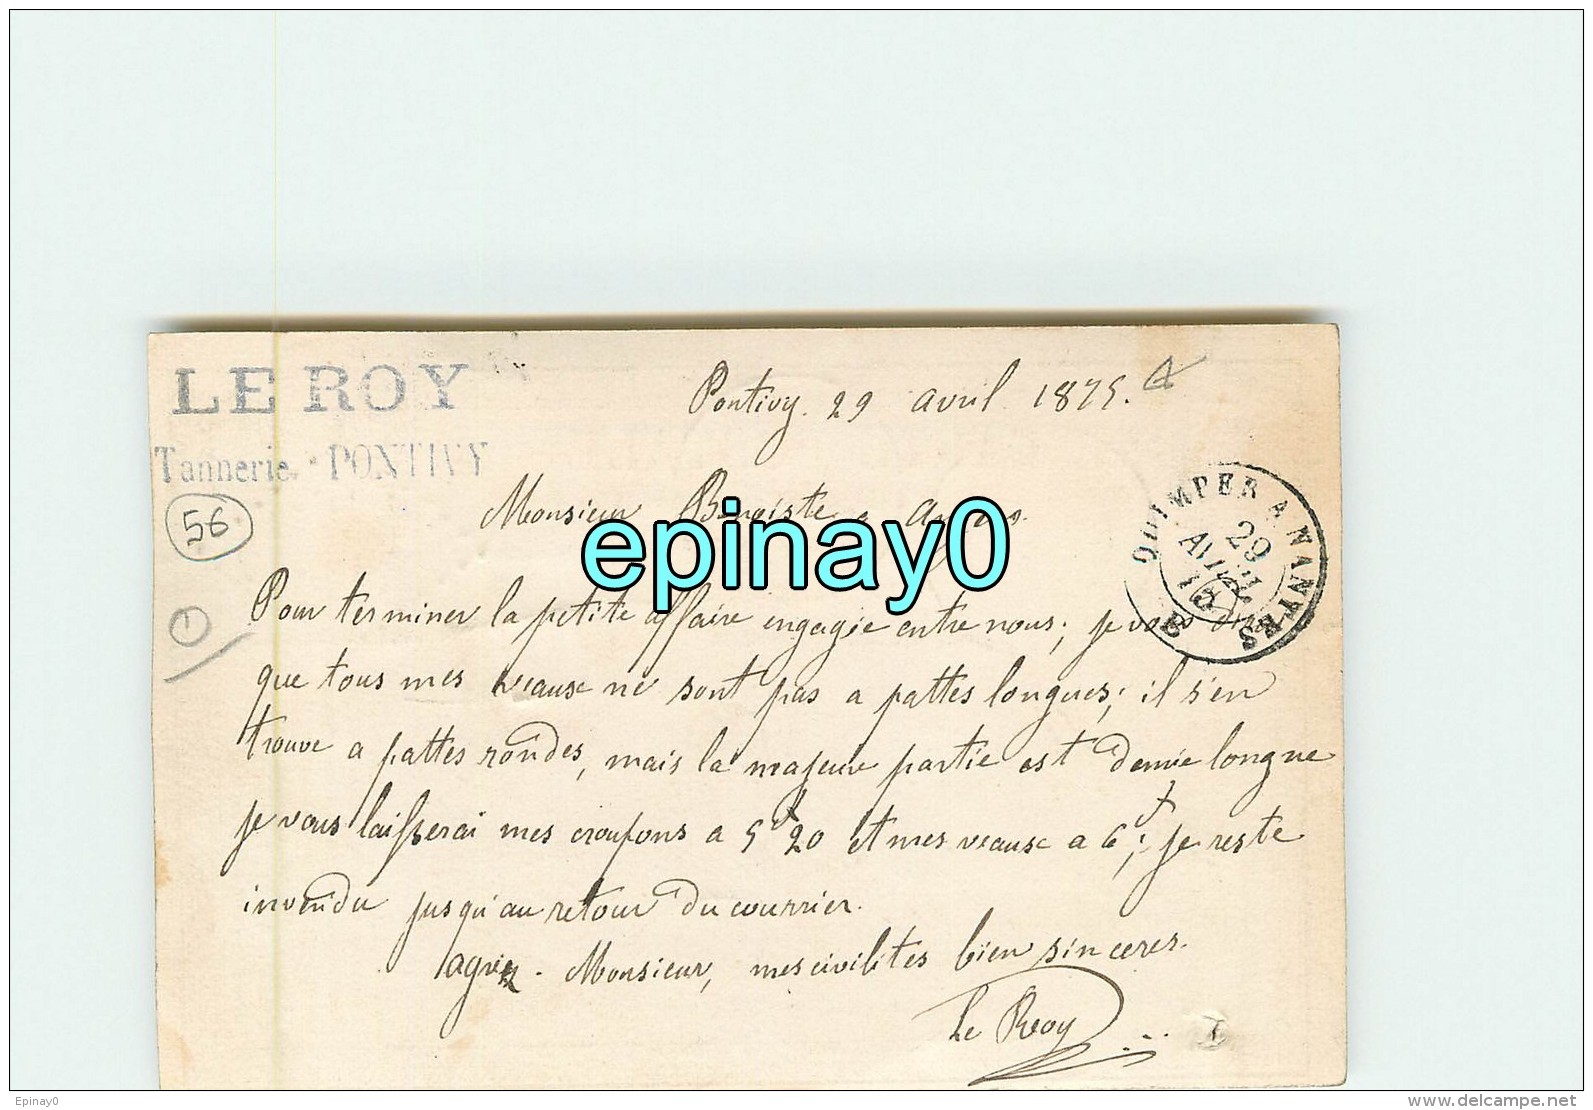 LE ROY
Tannerie. PONTIVY
56
1
Pontivy. 29 avril 1875.
QUIMPER A NANTES
29
AVRIL
75
Monsieur Benoiste a
epinay0
Pour terminer la petite affaire engagée entre nous; je vous dirai
que tous mes veaux ne sont pas a pattes longues; il s'en
trouve a pattes rondes, mais la majeure partie est demie longue
je vous laisserai mes croupons a 5f 20 et mes veaux a 6f; je reste
invendu jusqu'au retour du courrier.
agréez. Monsieur, mes civilites bien sinceres.
Le Roy
Epinay0
www.delcampe.net